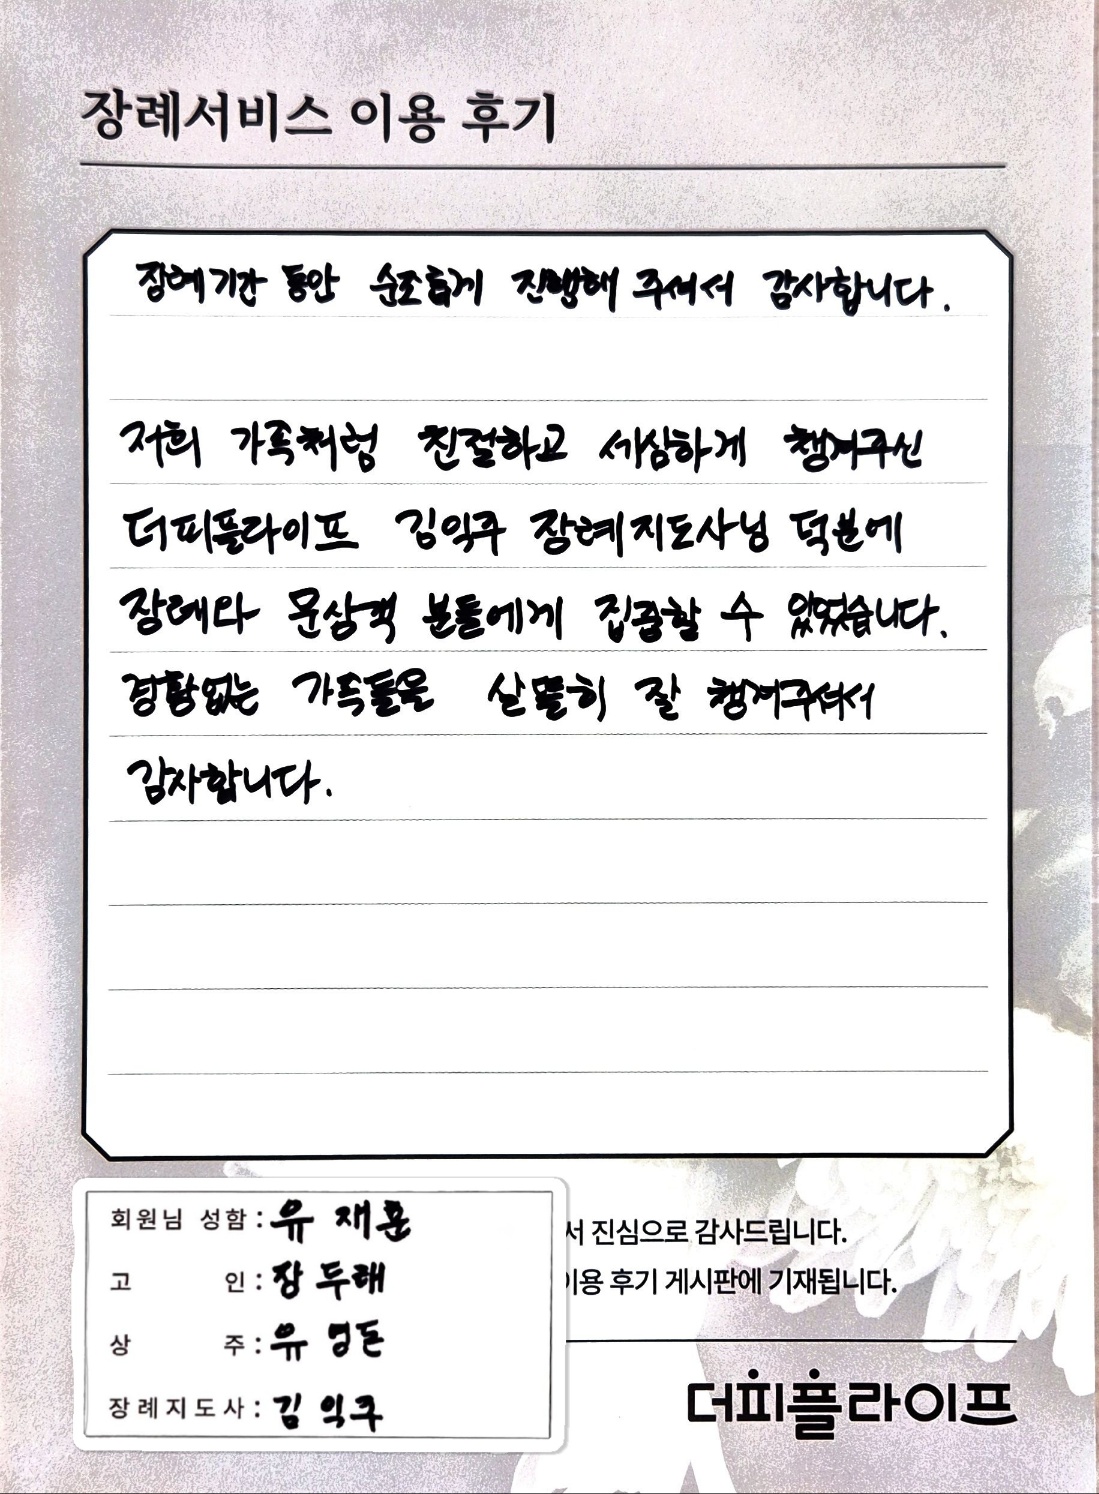 장례서비스 이용 후기
장례기간 동안 순조롭게 진행해 주셔서 감사합니다.
저희 가족처럼 친절하고 세심하게 챙겨주신
더피플라이프 김익주 장례지도사님 덕분에
장례와 문상객 분들에게 집중할 수 있었습니다.
경황없는 가족들을 살뜰히 잘 챙겨주셔서
감사합니다.
회원님 성함 : 유재훈
고 인 : 장두해
상 주 : 유
장례지도사 : 김익주
서 진심으로 감사드립니다.
이용 후기 게시판에 기재됩니다.
더피플라이프